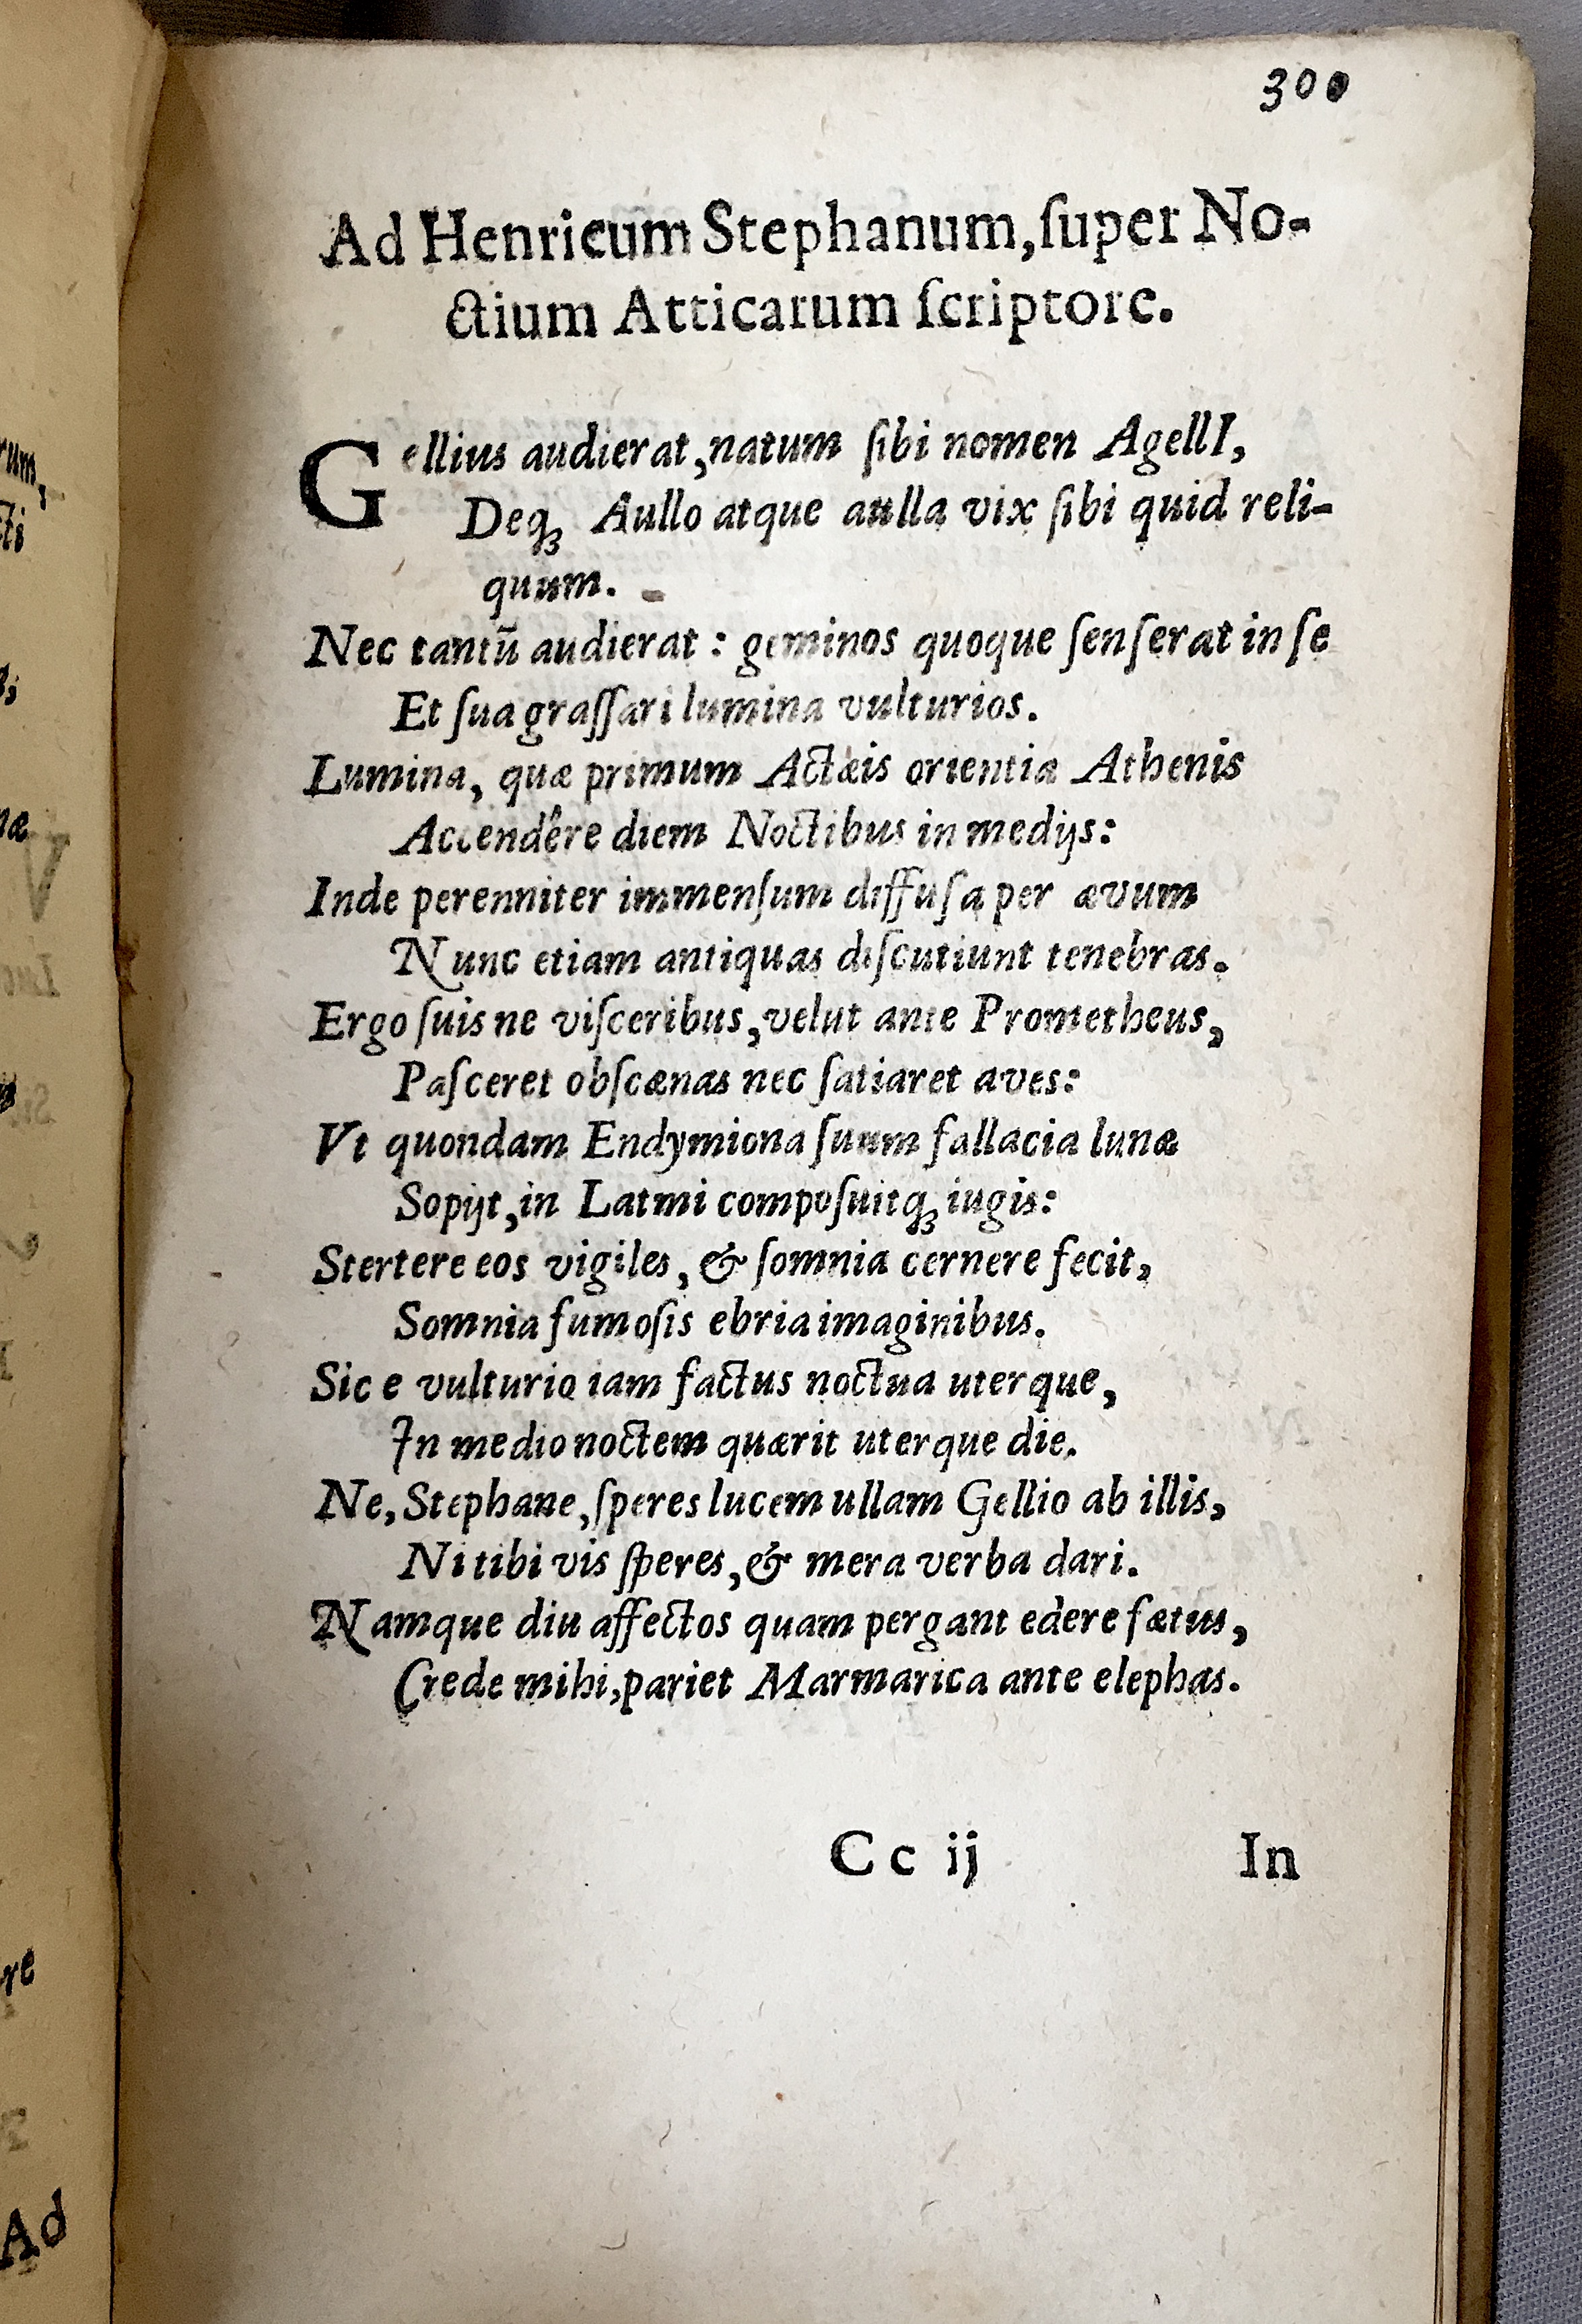 300
Ad Henricum Stephanum, ſuper No-
ctium Atticarum ſcriptore.
Gellius audierat, natum ſibi nomen AgellI,
Deq́; Aullo atque aulla vix ſibi quid reli-
quum.
Nec tantũ audierat : geminos quoque ſenſerat in ſe
Et ſua graſſari lumina vulturios.
Lumina, quæ primum Actæis orientia Athenis
Accendêre diem Noctibus in medijs:
Inde perenniter immenſum diffuſa per ævum
Nunc etiam antiquas diſcutiunt tenebras.
Ergo ſuis ne viſceribus, velut ante Prometheus,
Paſceret obſcænas nec ſatiaret aves:
Vt quondam Endymiona ſuum fallacia lunæ
Sopijt, in Latmi compoſuitq; iugis:
Stertere eos vigiles, & ſomnia cernere fecit,
Somnia fumoſis ebria imaginibus.
Sic e vulturio iam factus noctua uterque,
In medio noctem quærit uterque die.
Ne, Stephane, ſperes lucem ullam Gellio ab illis,
Ni tibi vis ſperes, & mera verba dari.
Namque diu affectos quam pergant edere fætus,
Crede mihi, pariet Marmarica ante elephas.
Cc ij In
rum,
næ
re
Ad